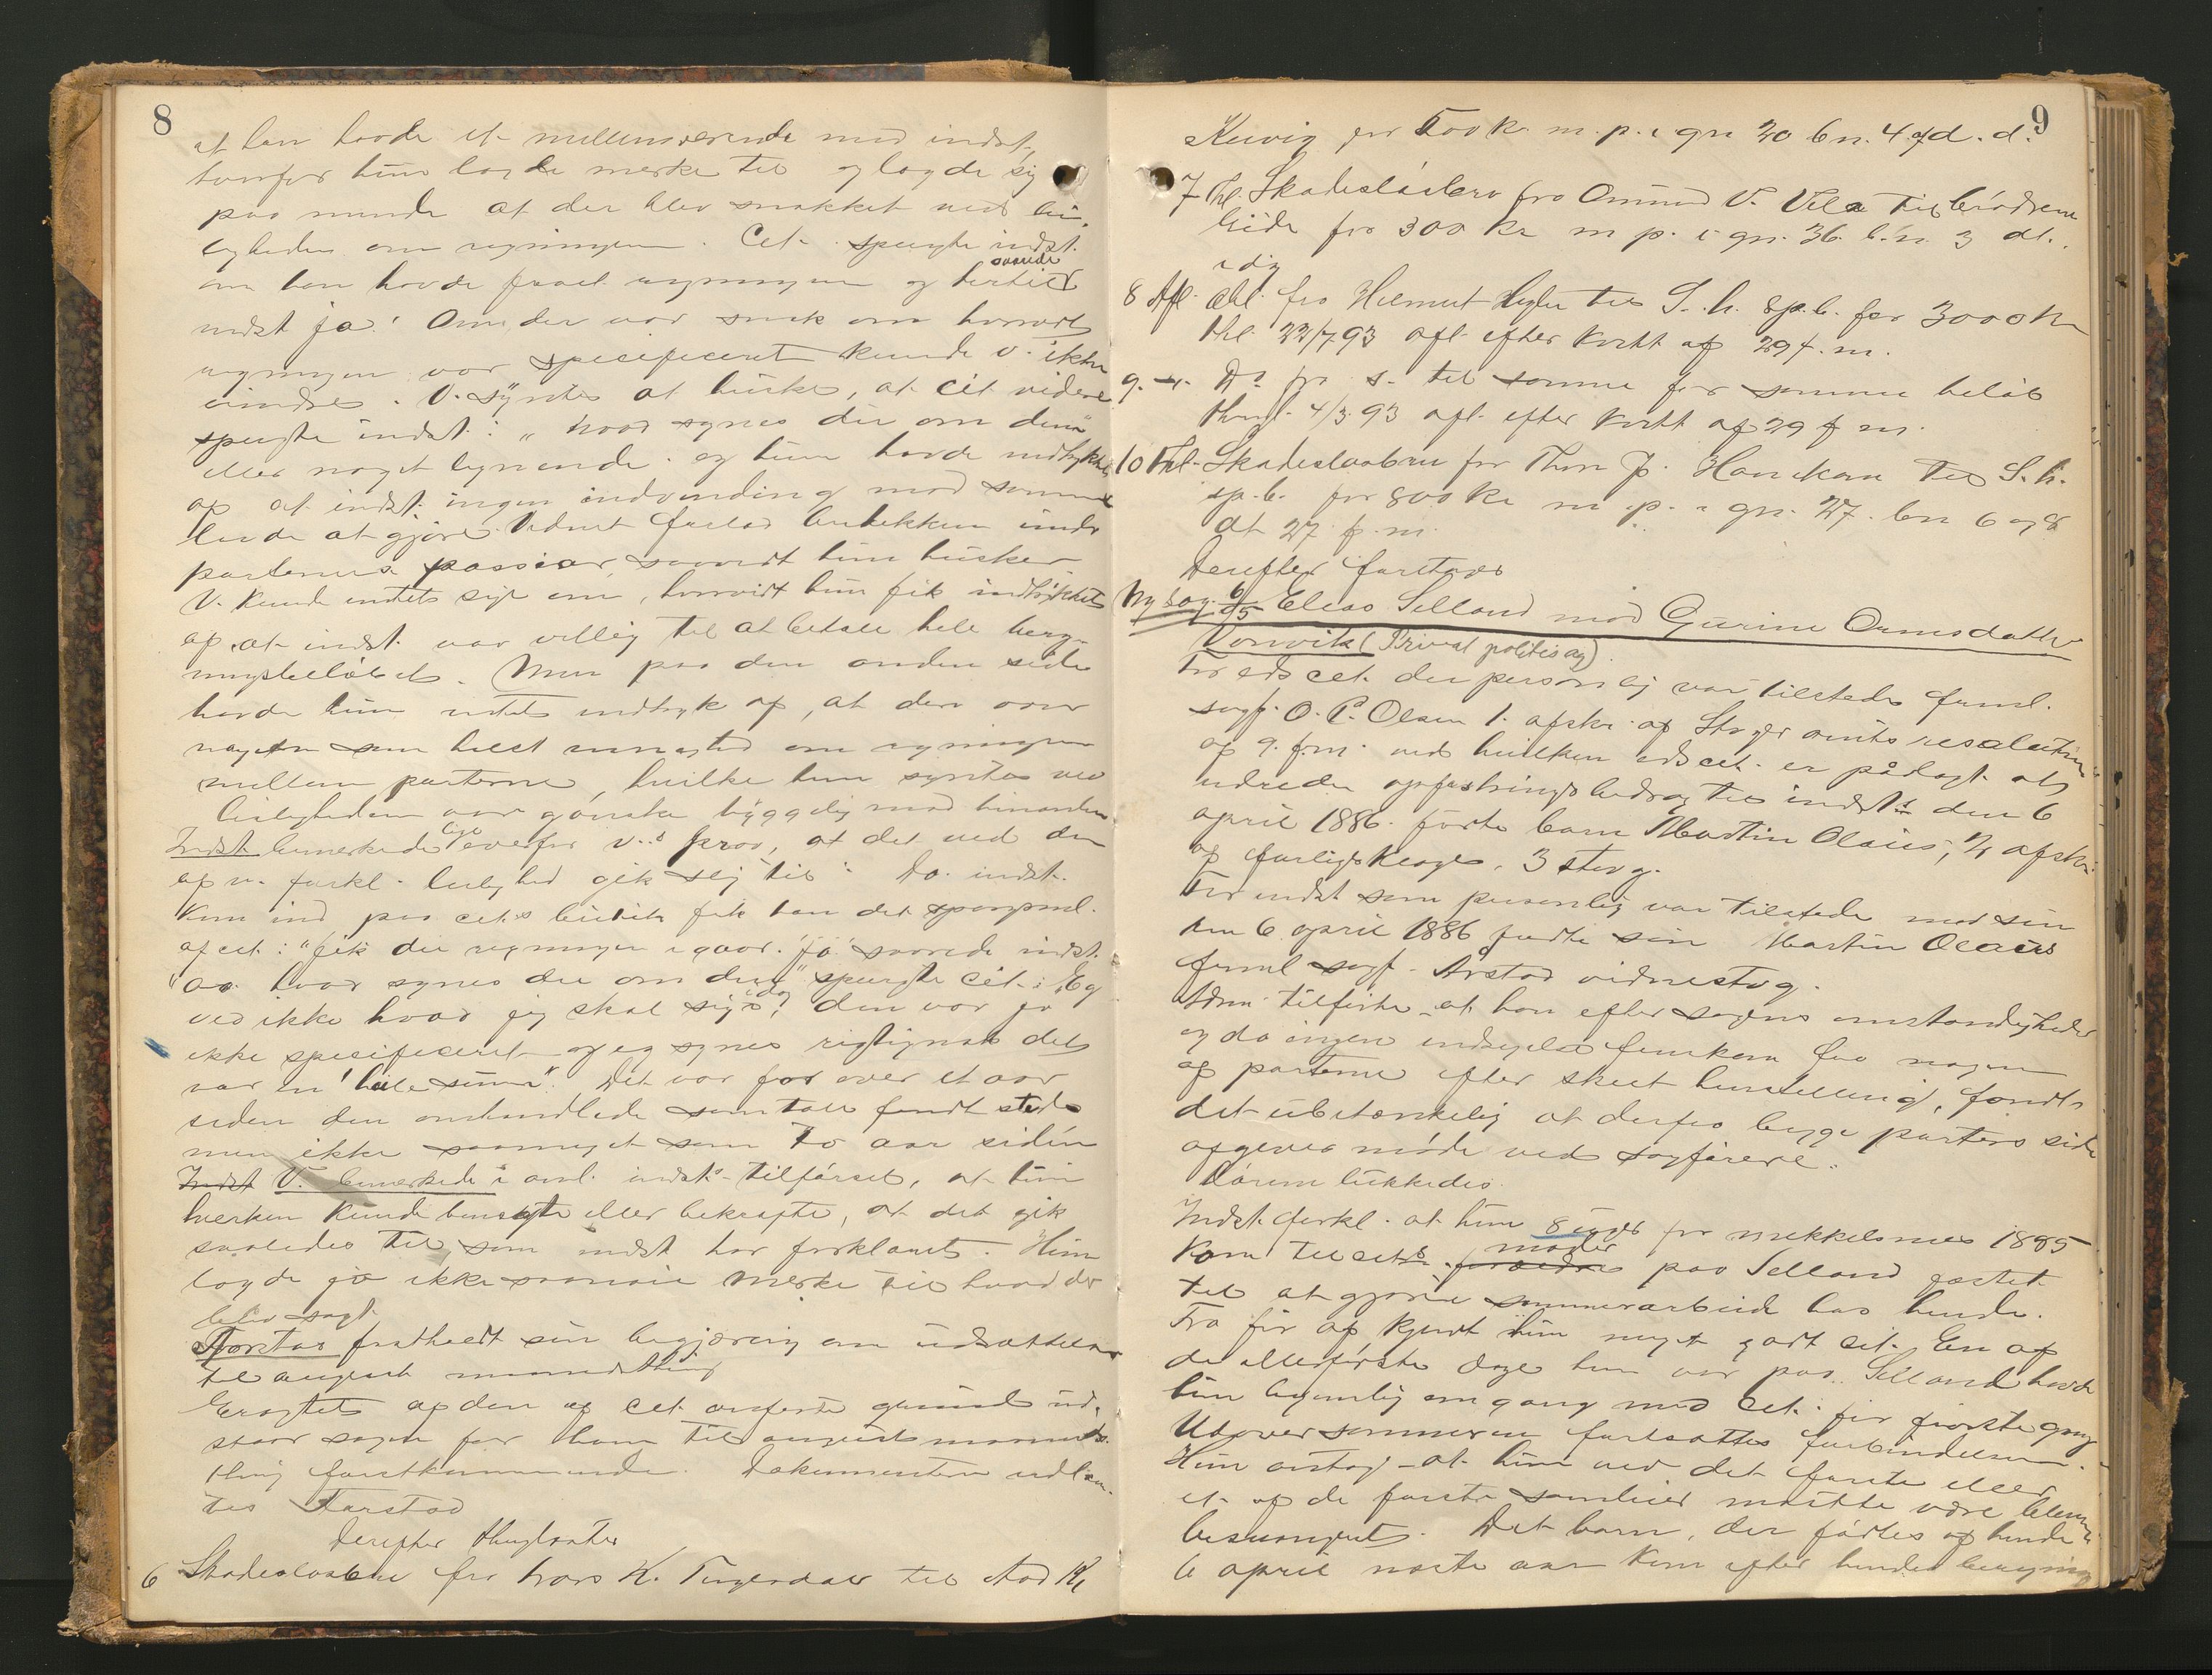 8
at han havde et mellemværende med indst.,
hvorfor hun lagde merke til og lagde sig
paa minde at der blev snakket ved lei-
ligheden om regningen. Cit. spurgte indst.
om han havde faaet regningen og hertil svarede
indst ja! Om der var snak om hvorvidt
regningen var specificeret kunde v. ikke
mindes. V. syntes at huske, at cit videre
spurgte indst.: "hvad synes du om den"
eller noget lignende. og hun havde indtryk
af at indst. ingen indvending mod samme
havde at gjøre. Vidnet forlod butikken under
parternes passiar, saavidt hun husker
V. kunde intet sige om, hvorvidt hun fik indtrykket
af, at indst. var villig til at betale hele
beløbet. Men paa den anden side
havde hun intet indtryk af, at der var
nogen som helst uenighed om regningen
mellem parterne, hvilke hun syntes ved
leiligheden var ganske hyggelig mod hinanden
Indst. bemerkede lige overfor v.s prov, at det ved den
af v. forkl. leilighed gik slig til: Da indst.
kom ind paa cit.s butik fik han det spørgsml.
af cit: "fik du regningen igaar." ja svarede indst.
"Aa hvad synes du om den" spurgte cit.: "Eg
ved ikke hvad jeg skal sige idag, den var jo
ikke specificeret og eg synes rigtignok det
var en hele sum". Det var for over et aar
siden den omhandlede samtale fandt sted
men ikke saameget som to aar siden
Indst V. bemerkede i anl. indst.s tilførsel, at hun
hverken kunde benegte eller bekræfte, at det gik
saaledes til, som indst har forklaret. Hun
lagde jo ikke saanøie merke til hvad der
blev sagt.
Aarstad fastholdt sin begjæring om udsættelse
til august maanedsthing
Eragtet af den af cit anførte grund ud-
staar sagen for ham til august maaneds-
thing førstkommende. Dokumenterne udlaan-
tes Aarstad
Derefter thinglæstes
6 Skadesløsbrev fra Lars K. Tengesdal til And K.
9
Kuvig for 500 kr. m. p. i gn 20 bn. 4 af d. d.
7 Thl. Skadesløsbrev fra Omund V. Vila til brødrene
Eide for 300 kr m p. i gn. 36. b.n. 3 dt.
idag
8 Afl. Obl. fra Helmut Hegle til S. h. sp. b. for 3000 kr
thl 23/7 93 afl. efter kvitt af 29 f. m.
9. -"- Do fra s. til samme for samme beløb
thingl. 4/3 93 afl. efter kvitt af 29 f m.
10 Thl. Skadesløsbrev fra Thore J. Haneknu til S. h.
sp. b. for 800 kr m. p. i gn. 27. bn 6 og 8
dt 27 f. m.
Derefter foretoges
Ny sag. 6/95 Elias Selland mod Gurine Ormsdatter
Vorvik (Privat politisag).
For cit. der personlig var tilstede freml.
sagf. O. P. Olsen 1. afskr. af Stvgr amts resolution
af 9. f. m. ved hvilken cit. er pålagt at
udrede opfostringsbidrag til indst.s den 6
april 1886 fødte barn Martin Olaus, 2/ afskr.
af forligsklage. 3 stevg.
For indst som personlig var tilstede med sin
den 6 april 1886 fødte søn Martin Olaus
freml sagf. Årstad vidnestevg.
Adm. tilførte at han efter sagens omstændigheder
og da ingen indsigelse fremkom fra nogen
af parterne efter skeet henstilling, fandt
det ubetænkelig at der fra begge parters side
afgives møde ved sagfører.
Dørene lukkedes.
Indst. forkl. at hun 8 uger før mekkelsmes 1885
kom til cit.s forældre moder paa Selland gaard
til at gjøre sommerarbeide hos hende.
Fra før af kjendt hun noget godt cit. En af
de allerførste dage hun var paa Selland havde
hun legemlig omgang med cit. for første gang
Udover sommeren fortsattes forbindelsen.
Hun antog at hun ved det første eller
et af de første samleier maatte være bleven
besvangret. Det barn, der fødtes af hende
6 april næste aar kom efter hendes beregning